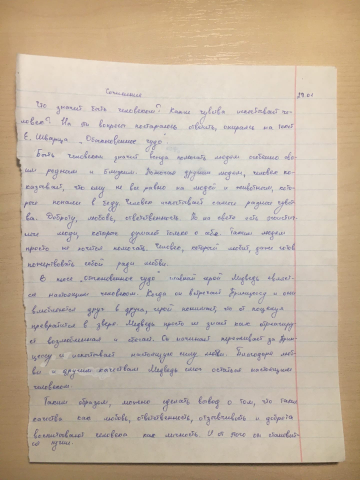 Сочинение
29.01
Что значит быть человеком? Какие чувства испытывает че-
ловек? На эти вопросы постараюсь ответить, опираясь на текст
Е. Шварца "Обыкновенное чудо"
Быть человеком значит всегда помогать людям особенно сво-
им родным и близким. Помогая другим людям, человек по-
казывает, что ему не всё равно на людей и животного, кото-
рого попали в беду. Человек испытывает самые разные чувст-
ва. Доброту, любовь, ответственность. Но на свете есть эгоистич-
ные люди, которые думают только о себе. Таким людям
просто не хочется помогать. Человек, который любит, даже готов
пожертвовать собой ради любви.
В пьесе "Обыкновенное чудо" главный герой Медведь являет-
ся настоящим человеком. Когда он встречает Принцессу и они
влюбляются друг в друга, герой понимает, что от поцелуя
превратится в зверя. Медведь просто не знает как отреагиру-
ет возлюбленная и сбегает. Он начинает переживать за Прин-
цессу и испытывает настоящую силу любви. Благодаря люб-
ви и другим качествам Медведь смог остаться настоящим
человеком.
Таким образом, можно сделать вывод о том, что такие
качества как любовь, ответственность, отзывчивость и доброта
воспитывают человека как личность. И от этого он становит-
ся лучше.